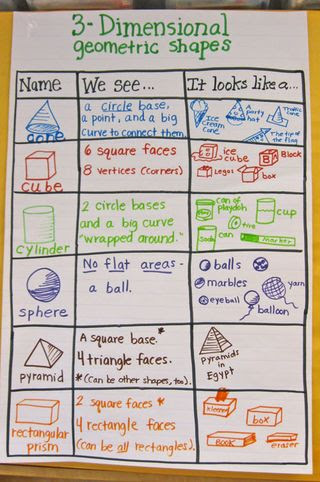 3-Dimensional
geometric shapes
Name
We see...
It looks like a...
cone
a circle base,
a point, and a big
curve to connect them.
Ice
Cream
Cone
A
party
hat
Traffic
cone
The tip of
the flag
cube
6 square faces
8 vertices (corners)
ice
cube
Block
Legos
box
cylinder
2 circle bases
and a big curve
"wrapped around."
can of
playdoh
cup
tire
Soda
can
marker
sphere
No flat areas -
a ball.
balls
marbles
yarn
eyeball
balloon
pyramid
A square base.*
4 triangle faces.
*(Can be other shapes, too).
Pyramids
in
Egypt
rectangular
prism
2 square faces *
4 rectangle faces
(can be all rectangles).
kleenex
box
BOOK
eraser